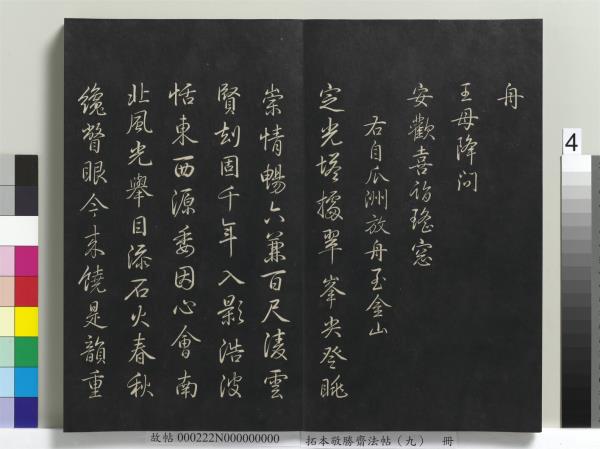 舟
王母降问
安歡喜詣瑤窓
右自瓜洲放舟至金山
定光塔據翠峯尖登眺
崇情暢六兼百尺淩雲
賢刧固千年入影浩波
恬東西源委因心會南
北風光舉目添石火春秋
纔瞥眼今来饒是韻重
4
故帖 000222N000000000
拓本敬勝齋法帖（九） 冊